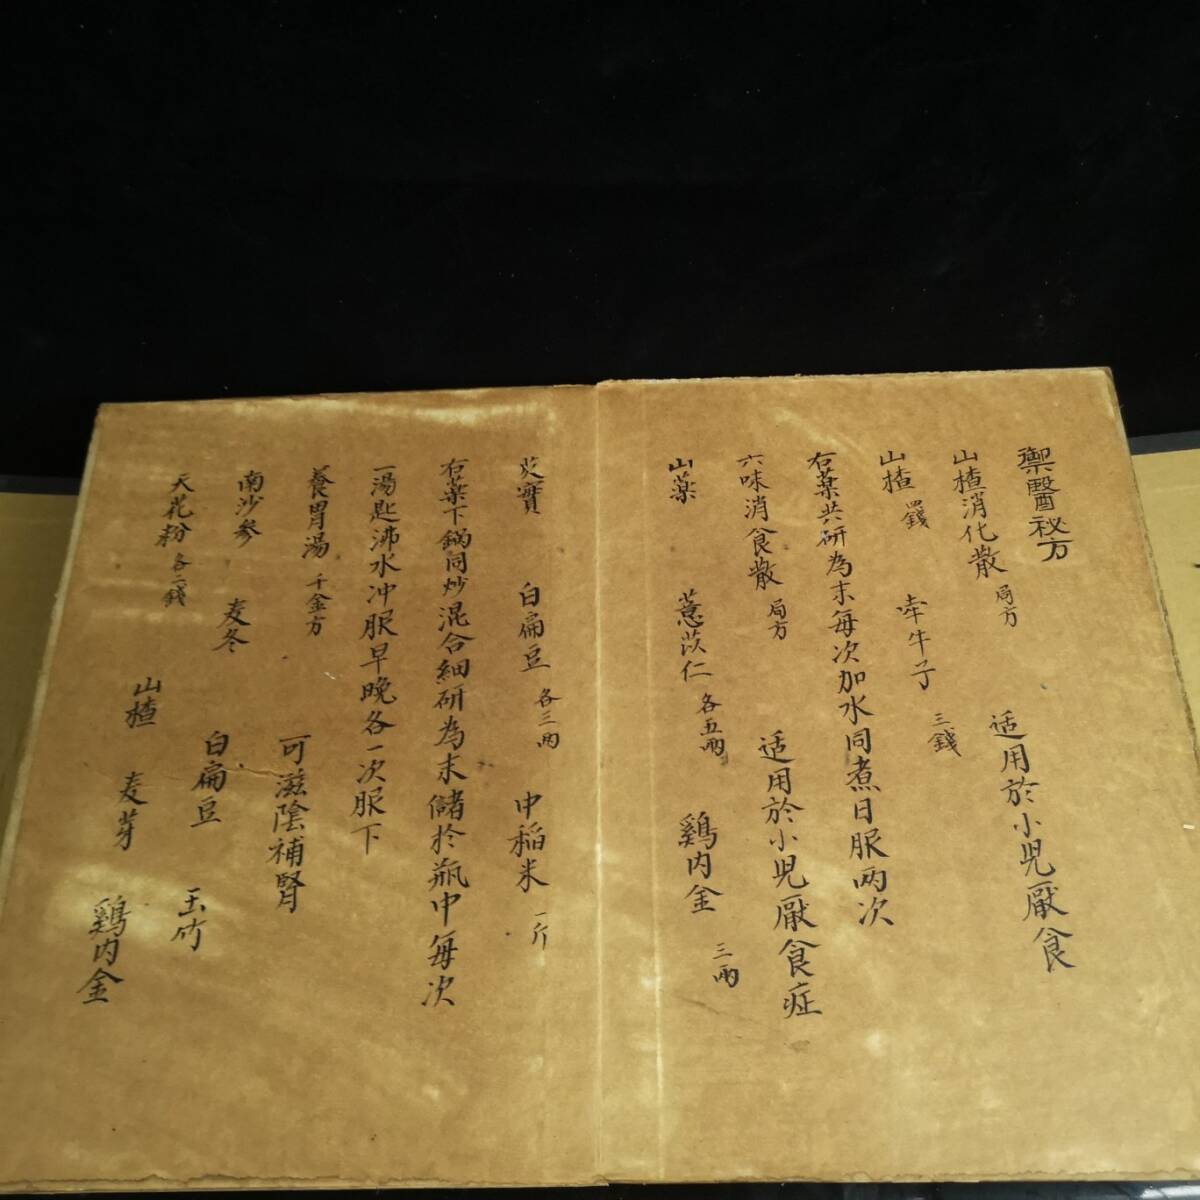 禦醫秘方
山楂消化散 局方 适用於小児厭食
山楂 四錢 牵牛子 三錢
右薬共研為末每次加水同煮日服两次
六味消食散 局方 适用於小児厭食症
山薬 薏苡仁 各五両 鷄内金 三両
芡實 白扁豆 各三両 中稻米 一斤
右薬下鍋同炒混合細研為末儲於瓶中每次
一湯匙沸水冲服早晚各一次服下
養胃湯 千金方 可滋陰補腎
南沙参 麦冬 白扁豆 玉竹
天花粉 各二錢 山楂 麦芽 鷄内金